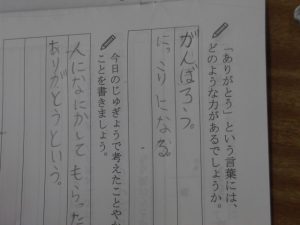 「ありがとう」という言葉には、
どのような力があるでしょうか。
がんばろう。
にっこりになる
今日のじゅぎょうで考えたことや
ことを書きましょう。
人になにかしてもらった
ありがとうという。